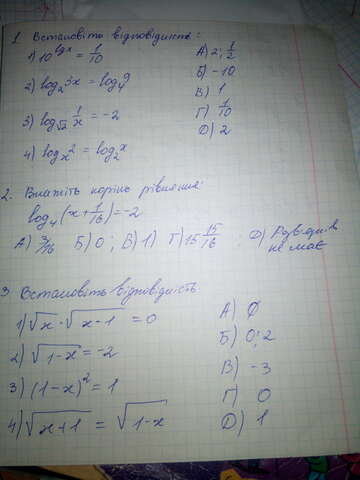 1. Встановіть відповідність:
1) 10^lgx = 1/10 А) 2; 1/2
2) log₂ 3x = log₄ 9 Б) -10
3) log√2 1/x = -2 В) 1
4) logₓ 2 = log₂ x Г) 1/10
Д) 2
2. Вкажіть корінь рівняння:
log₄(x + 1/16) = -2
А) 3/16 Б) 0; В) 1) Г) 15 15/16; Д) Розв'язків
не має
3. Встановіть відповідність
1) √x · √x-1 = 0 А) ∅
2) √1-x = -2 Б) 0; 2
3) (1-x)² = 1 В) -3
4) √x+1 = √1-x Г) 0
Д) 1